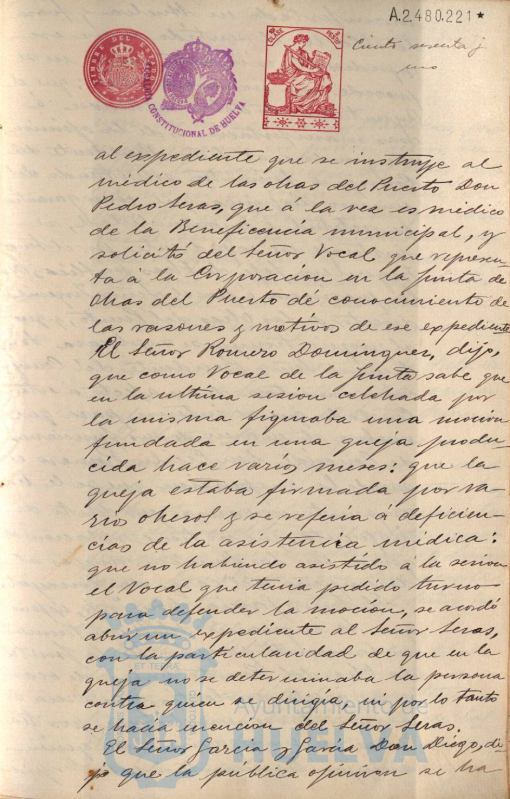 A.2.480.221★
TIMBRE DEL ESTADO
CONSTITUCIONAL DE HUELVA
Ciento sesenta y
uno
al expediente que se instruye al
médico de las obras del Puerto Don
Pedro Seras, que á la vez es médico
de la Beneficencia municipal, y
solicitó del Señor Vocal que represen-
ta á la Corporacion en la Junta de
Obras del Puerto dé conocimiento de
las razones y motivos de ese expediente
El Señor Romero Dominguez, dijo,
que como Vocal de la Junta sabe que
en la ultima sesion celebrada por
la misma figuraba una mocion
fundada en una queja produ-
cida hace varios meses: que la
queja estaba firmada por va-
rios obreros y se referia á deficien-
cias de la asistencia médica:
que no habiendo asistido á la sesion
el Vocal que tenia pedido turno
para defender la mocion, se acordó
abrir un expediente al Señor Seras,
con la particularidad de que en la
queja no se determinaba la persona
contra quien se dirigia, ni por lo tanto
se hacia mencion del Señor Seras.
El Señor Garcia y Garcia Don Diego, di-
jo que la pública opinion se ha
Ayuntamiento de
HUELVA